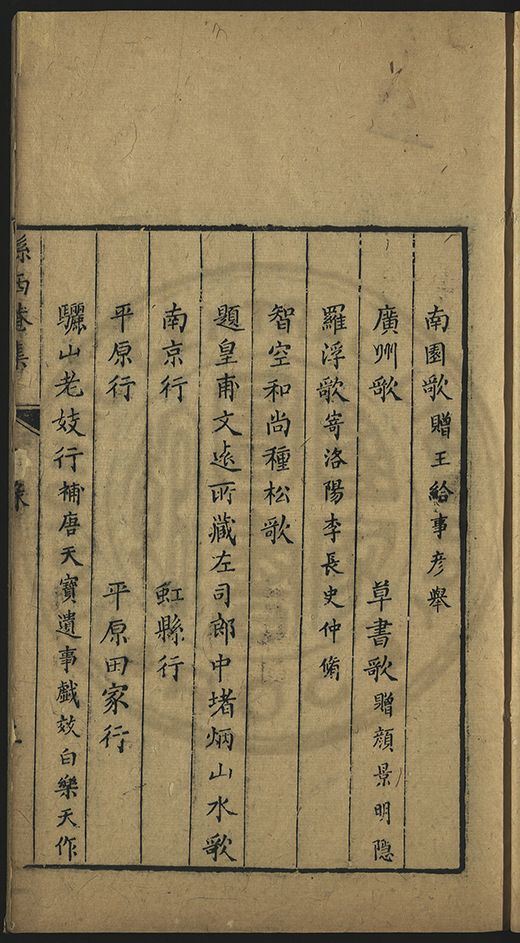 南園歌贈王給事彦舉
廣州歌 草書歌贈顔景明隠
羅浮歌寄洛陽李長史仲脩
智空和尚種松歌
題皇甫文遠所藏左司郎中堵炳山水歌
南京行 虹縣行
平原行 平原田家行
驪山老妓行補唐天寶遺事戲效白樂天作
西菴集